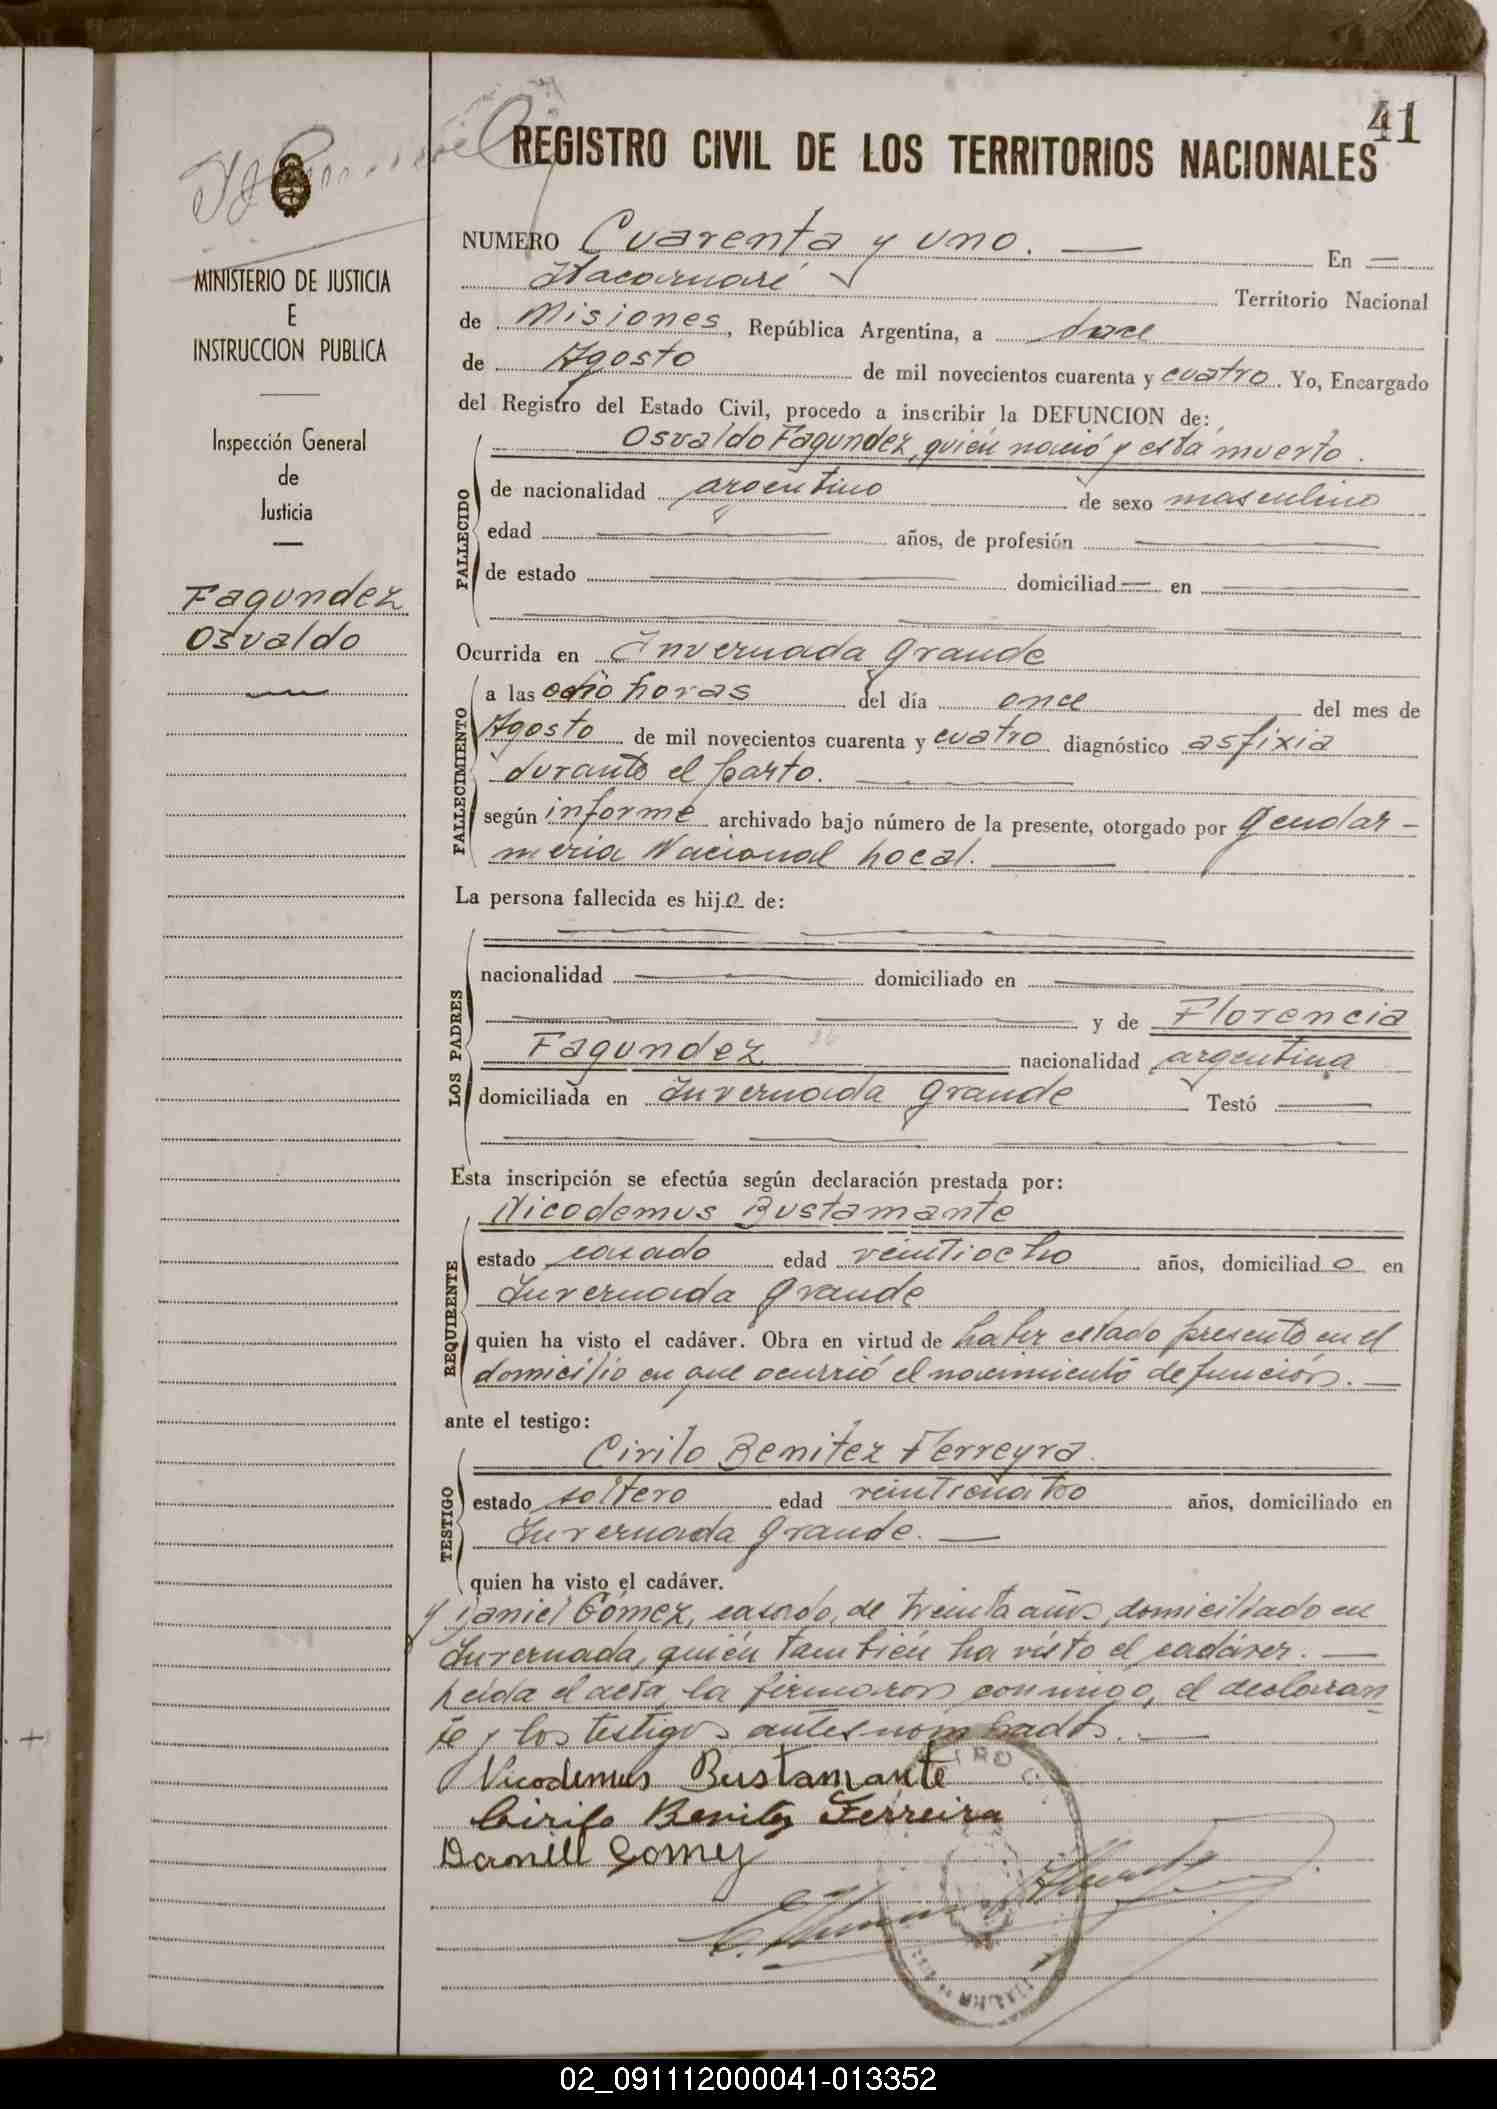 41
REGISTRO CIVIL DE LOS TERRITORIOS NACIONALES
MINISTERIO DE JUSTICIA
E
INSTRUCCION PUBLICA
Inspección General
de
Justicia
Fagundez
Osvaldo
NUMERO Cuarenta y uno. En
Itacaruaré Territorio Nacional
de Misiones, República Argentina, a doce
de Agosto de mil novecientos cuarenta y cuatro. Yo, Encargado
del Registro del Estado Civil, procedo a inscribir la DEFUNCION de:
Osvaldo Fagundez, quién nació y está muerto.
FALLECIDO
de nacionalidad argentino de sexo masculino
edad años, de profesión
de estado domiciliad en
Ocurrida en Invernada Grande
FALLECIMIENTO
a las ocho horas del día once del mes de
Agosto de mil novecientos cuarenta y cuatro diagnóstico asfixia
durante el parto.
según informe archivado bajo número de la presente, otorgado por Gendar-
mería Nacional local.
La persona fallecida es hijo de:
LOS PADRES
nacionalidad domiciliado en
y de Florencia
Fagundez nacionalidad argentina
domiciliada en Invernada Grande Testó
Esta inscripción se efectúa según declaración prestada por:
Nicodemus Bustamante
REQUIRENTE
estado casado edad veintiocho años, domiciliado en
Invernada Grande
quien ha visto el cadáver. Obra en virtud de haber estado presente en el
domicilio en que ocurrió el nacimiento defunción.
ante el testigo:
Cirilo Benitez Ferreyra.
TESTIGO
estado soltero edad veinticuatro años, domiciliado en
Invernada Grande.
quien ha visto el cadáver.
y Daniel Gómez, casado, de treinta años, domiciliado en
Invernada, quién también ha visto el cadáver.
Leída el acta, la firmaron conmigo, el declaran-
te y los testigos antes nombrados.
Nicodemus Bustamante
Cirilo Benitez Ferreira
Daniell Gomez
02_091112000041-013352